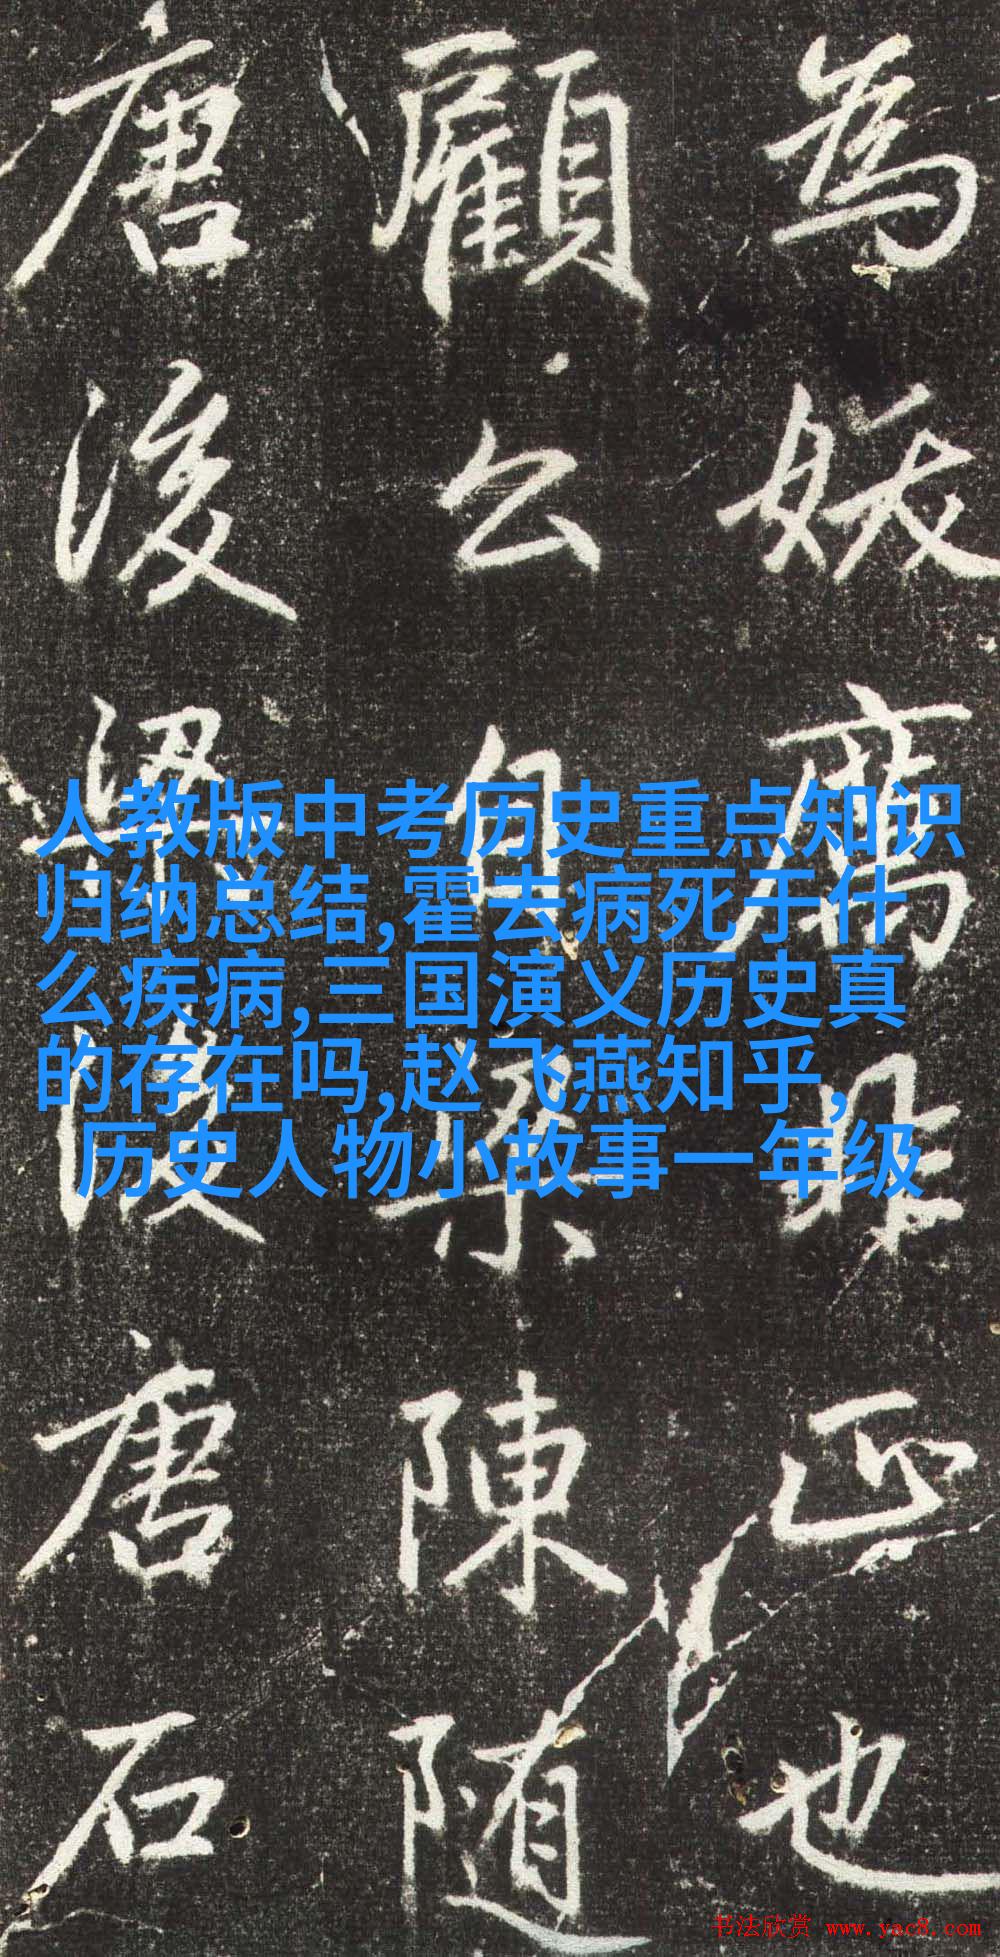 為
正
也
顧
公
自
梁
陳
随
唐
後
梁
後
唐
石
人教版中考历史重点知识
归纳总结,霍去病死于什
么疾病,三国演义历史真
的存在吗,赵飞燕知乎,
历史人物小故事一年级
书法欣赏 www.yac8.com